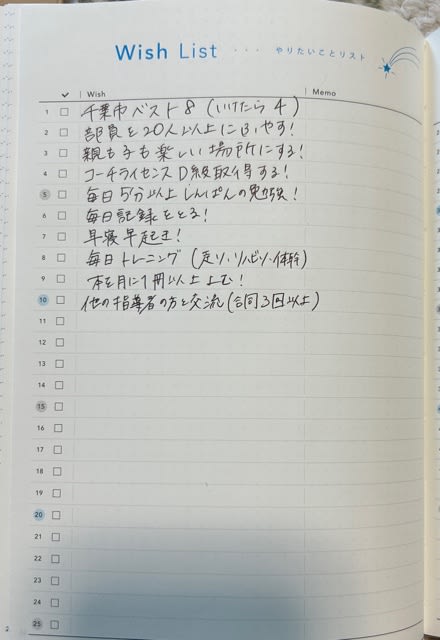 Wish List ・・・ やりたいことリスト
✓ Wish Memo
1 千葉市ベスト8（いけたら4）
2 部員を20人以上にふやす！
3 親も子も楽しい場所にする！
4 コーチライセンスD級取得する！
5 毎日5分以上しんぱんの勉強！
6 毎日記録をとる！
7 早寝早起き！
8 毎日トレーニング（走り・リハビリ・体幹）
9 本を月に1冊以上よむ！
10 他の指導者の方と交流（合同3回以上）
11
12
13
14
15
16
17
18
19
20
21
22
23
24
25
2